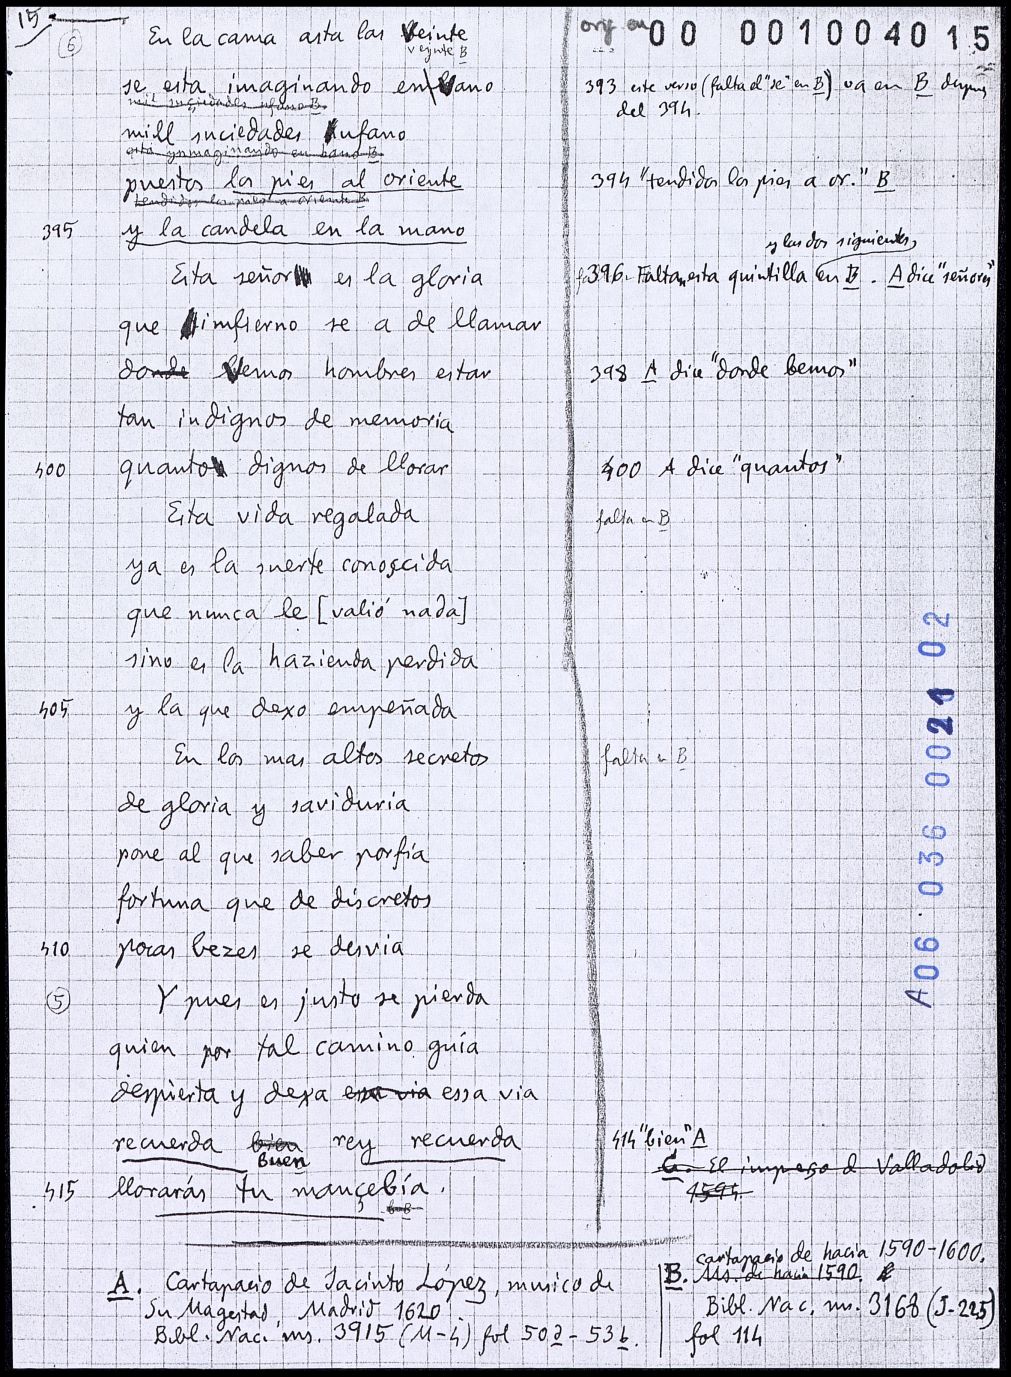 15
6
00 001004015
En la cama asta las Veinte
veynte B
se esta imaginando en Vano
393 este verso (falta el "se" en B) va en B despues
del 394.
mil suciedades ufano B
mill suciedades ufano
esta ymaginando en bano B
puestos los pies al oriente
394 "tendidos los pies a or." B
tendidos los pies a oriente B
395 y la candela en la mano
y las dos siguientes
Esta señor es la gloria
396. Faltan esta quintilla en B. A dice "señores"
que imfierno se a de llamar
donde Vemos hombres estar
398 A dice "donde bemos"
tan indignos de memoria
400 quanto dignos de llorar
400 A dice "quantos"
Esta vida regalada
falta en B
ya es la suerte conosçida
que nunca le [valió nada]
sino es la hazienda perdida
405 y la que dexo empeñada
En los mas altos secretos
falta en B
de gloria y saviduria
pone al que saber porfia
fortuna que de discretos
410 pocas bezes se desvia
5 Y pues es justo se pierda
quien por tal camino guía
despierta y dexa essa via essa via
recuerda bien rey recuerda
Buen
414 "bien" A
C. El impreso d Valladolid
1594
415 llorarás tu mançebía.
A. Cartapacio de Jacinto López, musico de
Su Magestad, Madrid 1620.
Bibl. Nac. ms. 3915 (M-4) fol 50a - 53b.
cartapacio de hacia 1590-1600.
B. Ms. de hacia 1590.
Bibl. Nac. ms. 3168 (J-225)
fol 114
A06 036 0021 02